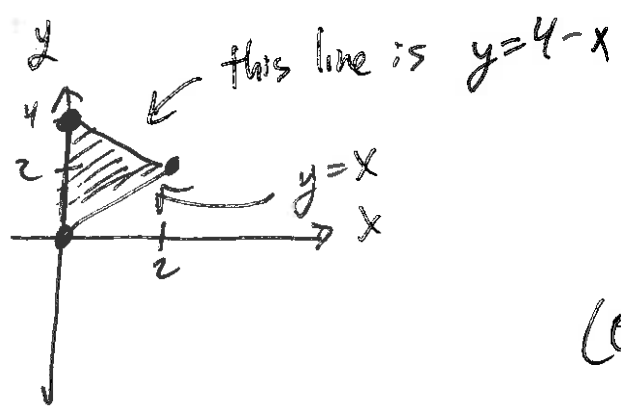 y
this line is y=4-x
4
2
y=x
x
2
(